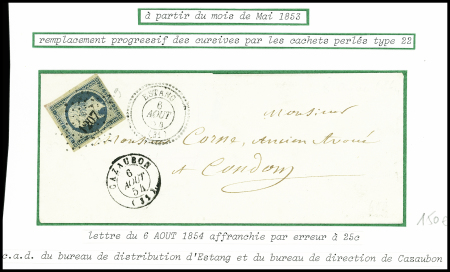 à partir du mois de Mai 1853
remplacement progressif des cursives par les cachets perlés type 22
1207
ESTANG
6
AOUT
54
(31)
Monsieur
Monsieur Corne, Ancien Avoué
à Condom
CAZAUBON
6
AOUT
54
(31)
150€
lettre du 6 AOUT 1854 affranchie par erreur à 25c
c.a.d. du bureau de distribution d'Estang et du bureau de direction de Cazaubon